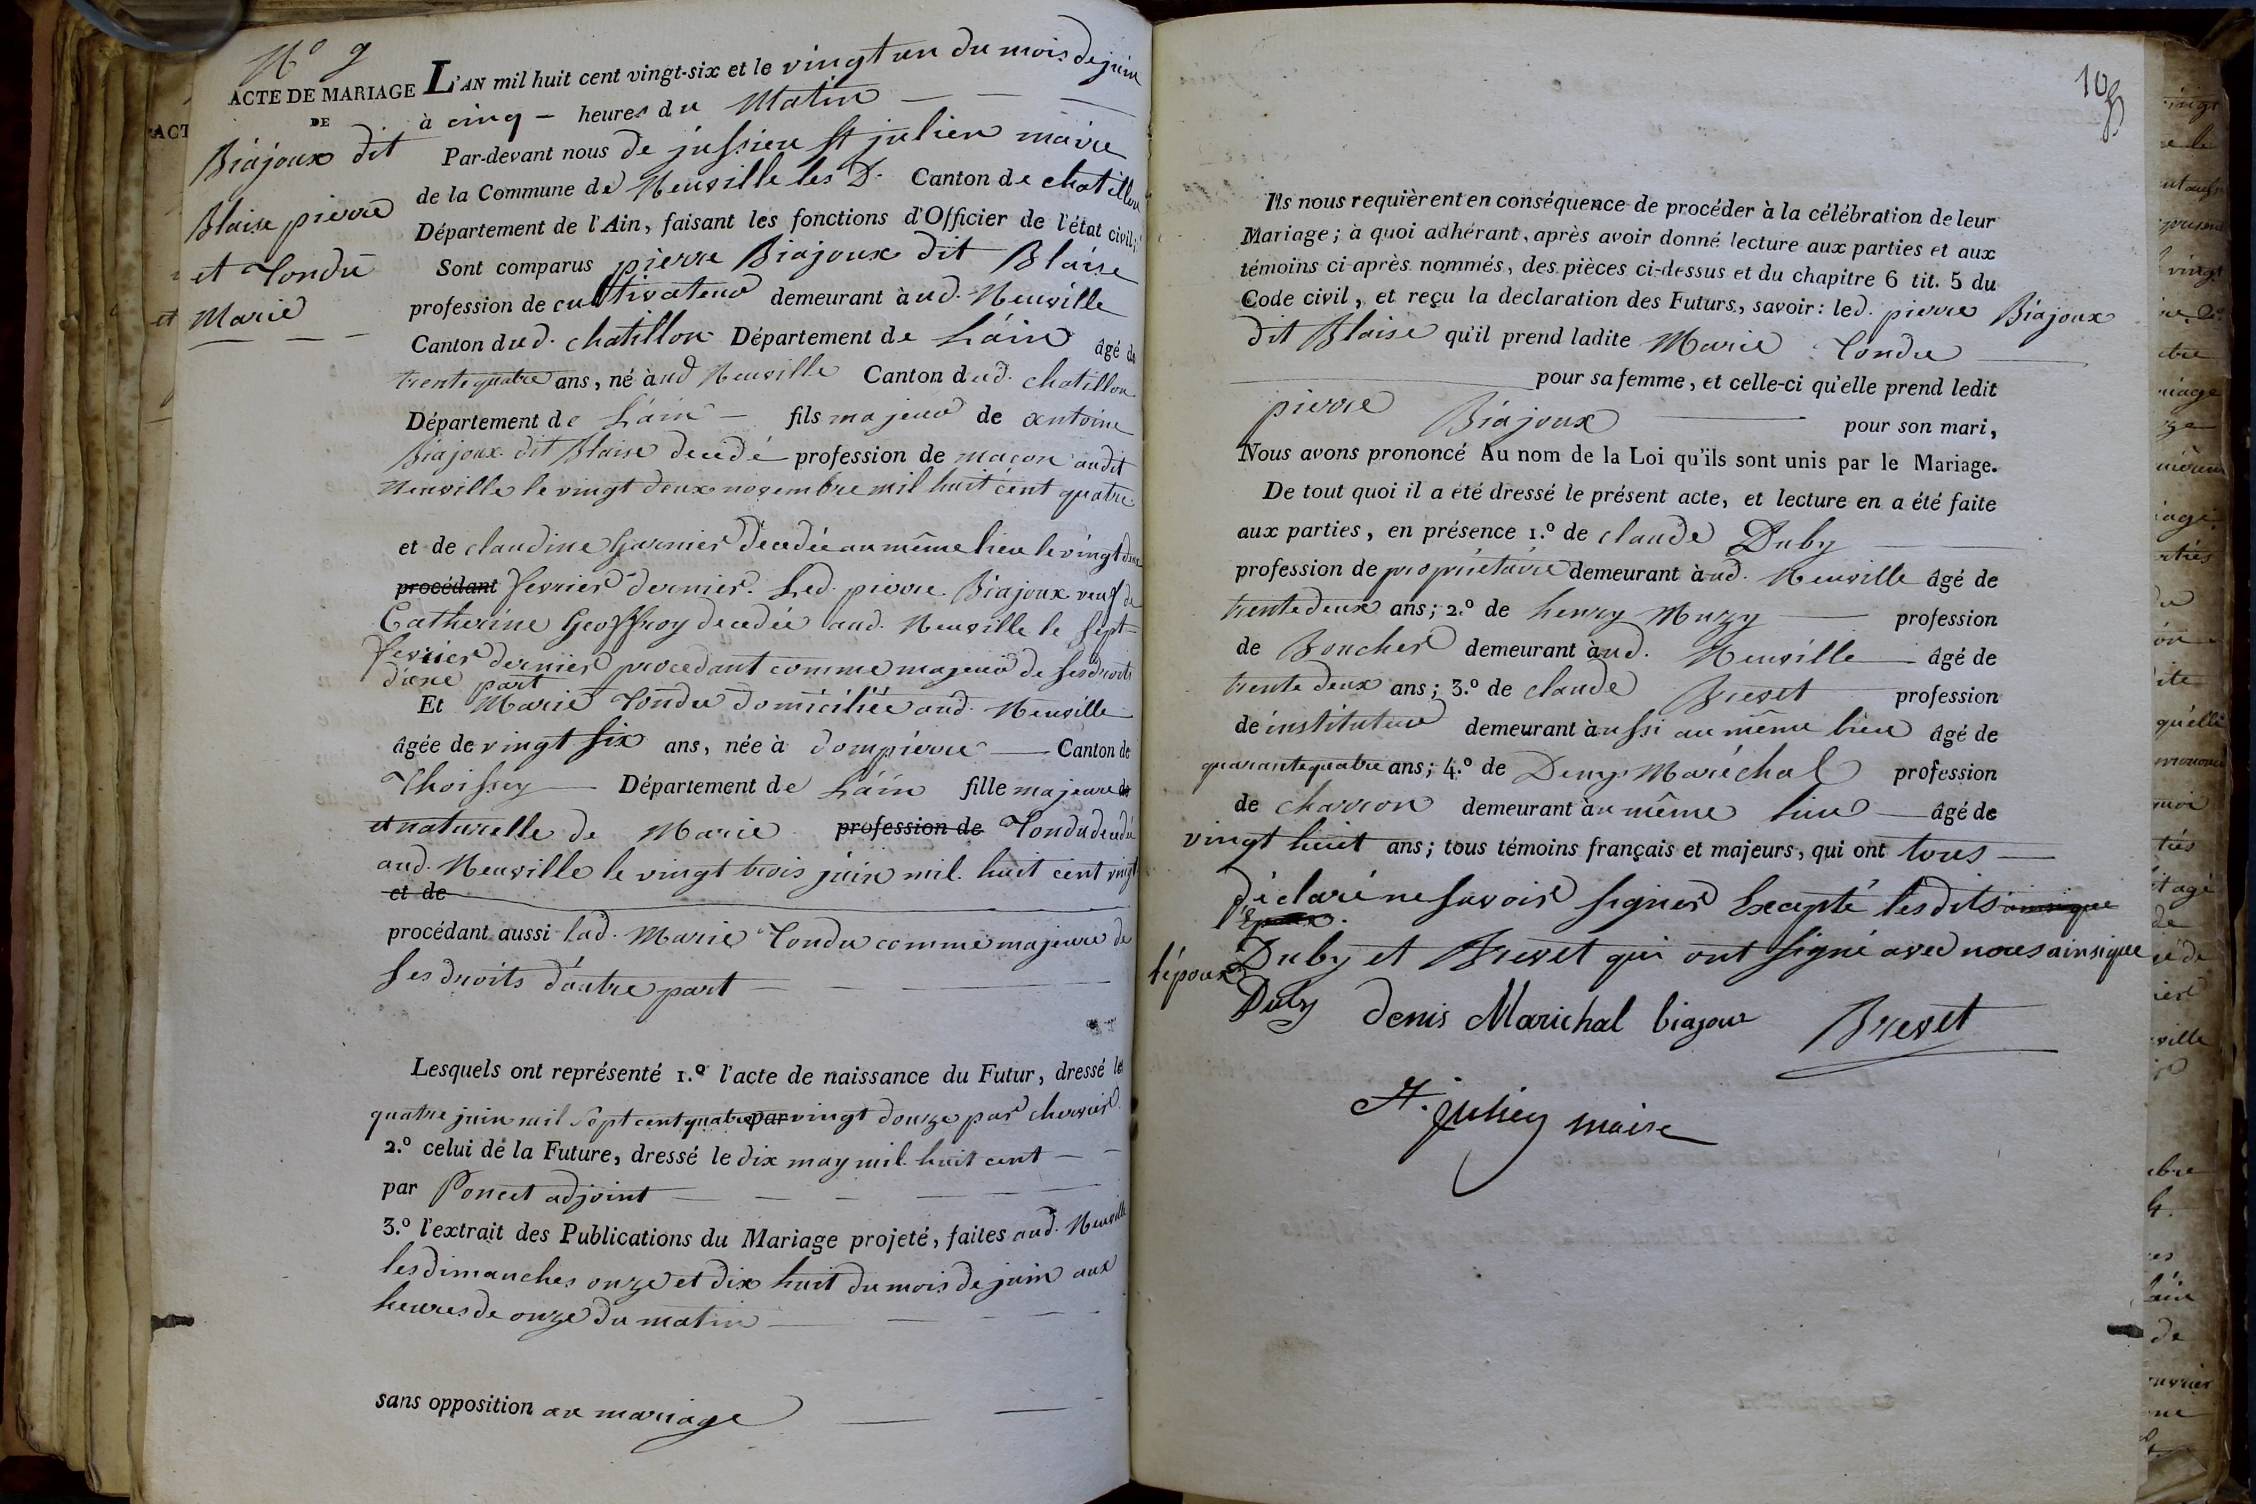 N° 9
ACTE DE MARIAGE
DE
Biajoux dit
Blaise pierre
et Tondu
Marie
L'AN mil huit cent vingt-six et le vingt un du mois de juin
à cinq heures du Matin
Par-devant nous de jussieu St julien maire
de la Commune de Neuville les D. Canton de chatillon
Département de l'Ain, faisant les fonctions d'Officier de l'état civil;
Sont comparus pierre Biajoux dit Blaise
profession de cultivateur demeurant à ud. Neuville
Canton dud. chatillon Département de L'ain âgé de
trente quatre ans, né à ud Neuville Canton dud. chatillon
Département de L'ain fils majeur de antoine
Biajoux dit Blaise decedé profession de macon audit
Neuville le vingt deux novembre mil huit cent quatre
et de claudine Garnier decedée au même lieu le vingt deux
procédant fevrier dernier. Led. pierre Biajoux veuf de
Catherine Geoffroy decedée aud. Neuville le sept
fevrier dernier procedant comme majeur de ses droits
d'une part
Et Marie Tondu domiciliée aud. Neuville
âgée de vingt six ans, née à dompierre Canton de
Thoissey Département de L'ain fille majeure de
et naturelle de Marie profession de Tondu decedée
aud. Neuville le vingt trois juin mil huit cent vingt
et de
procédant aussi lad. Marie Tondu comme majeure de
ses droits d'autre part
Lesquels ont représenté 1.° l'acte de naissance du Futur, dressé le
quatre juin mil sept cent quatre par vingt douze par chervier
2.° celui de la Future, dressé le dix may mil huit cent
par Poncet adjoint
3.° l'extrait des Publications du Mariage projeté, faites aud. Neuville
les dimanches onze et dix huit du mois de juin aux
heures de onze du matin
sans opposition au mariage
105
Ils nous requièrent en conséquence de procéder à la célébration de leur
Mariage; à quoi adhérant, après avoir donné lecture aux parties et aux
témoins ci-après nommés, des pièces ci-dessus et du chapitre 6 tit. 5 du
Code civil, et reçu la declaration des Futurs, savoir: led. pierre Biajoux
dit Blaise qu'il prend ladite Marie Tondu
pour sa femme, et celle-ci qu'elle prend ledit
pierre Biajoux pour son mari,
Nous avons prononcé Au nom de la Loi qu'ils sont unis par le Mariage.
De tout quoi il a été dressé le présent acte, et lecture en a été faite
aux parties, en présence 1.° de claude Duby
profession de propriétaire demeurant à ud. Neuville âgé de
trente deux ans; 2.° de henry Muzy profession
de Boucher demeurant à ud. Neuville âgé de
trente deux ans; 3.° de claude Brevet profession
de instituteur demeurant à ussi au même lieu âgé de
quarante quatre ans; 4.° de Deny Maréchal profession
de charron demeurant à u même lieu âgé de
vingt huit ans; tous témoins français et majeurs, qui ont tous
déclaré ne savoir signer Excepté lesdits ainsique
l'Epoux.
Duby et Brevet qui ont signé avec nous ainsique
l'époux
Duby denis Marichal biajoux Brevet
St. julien maire